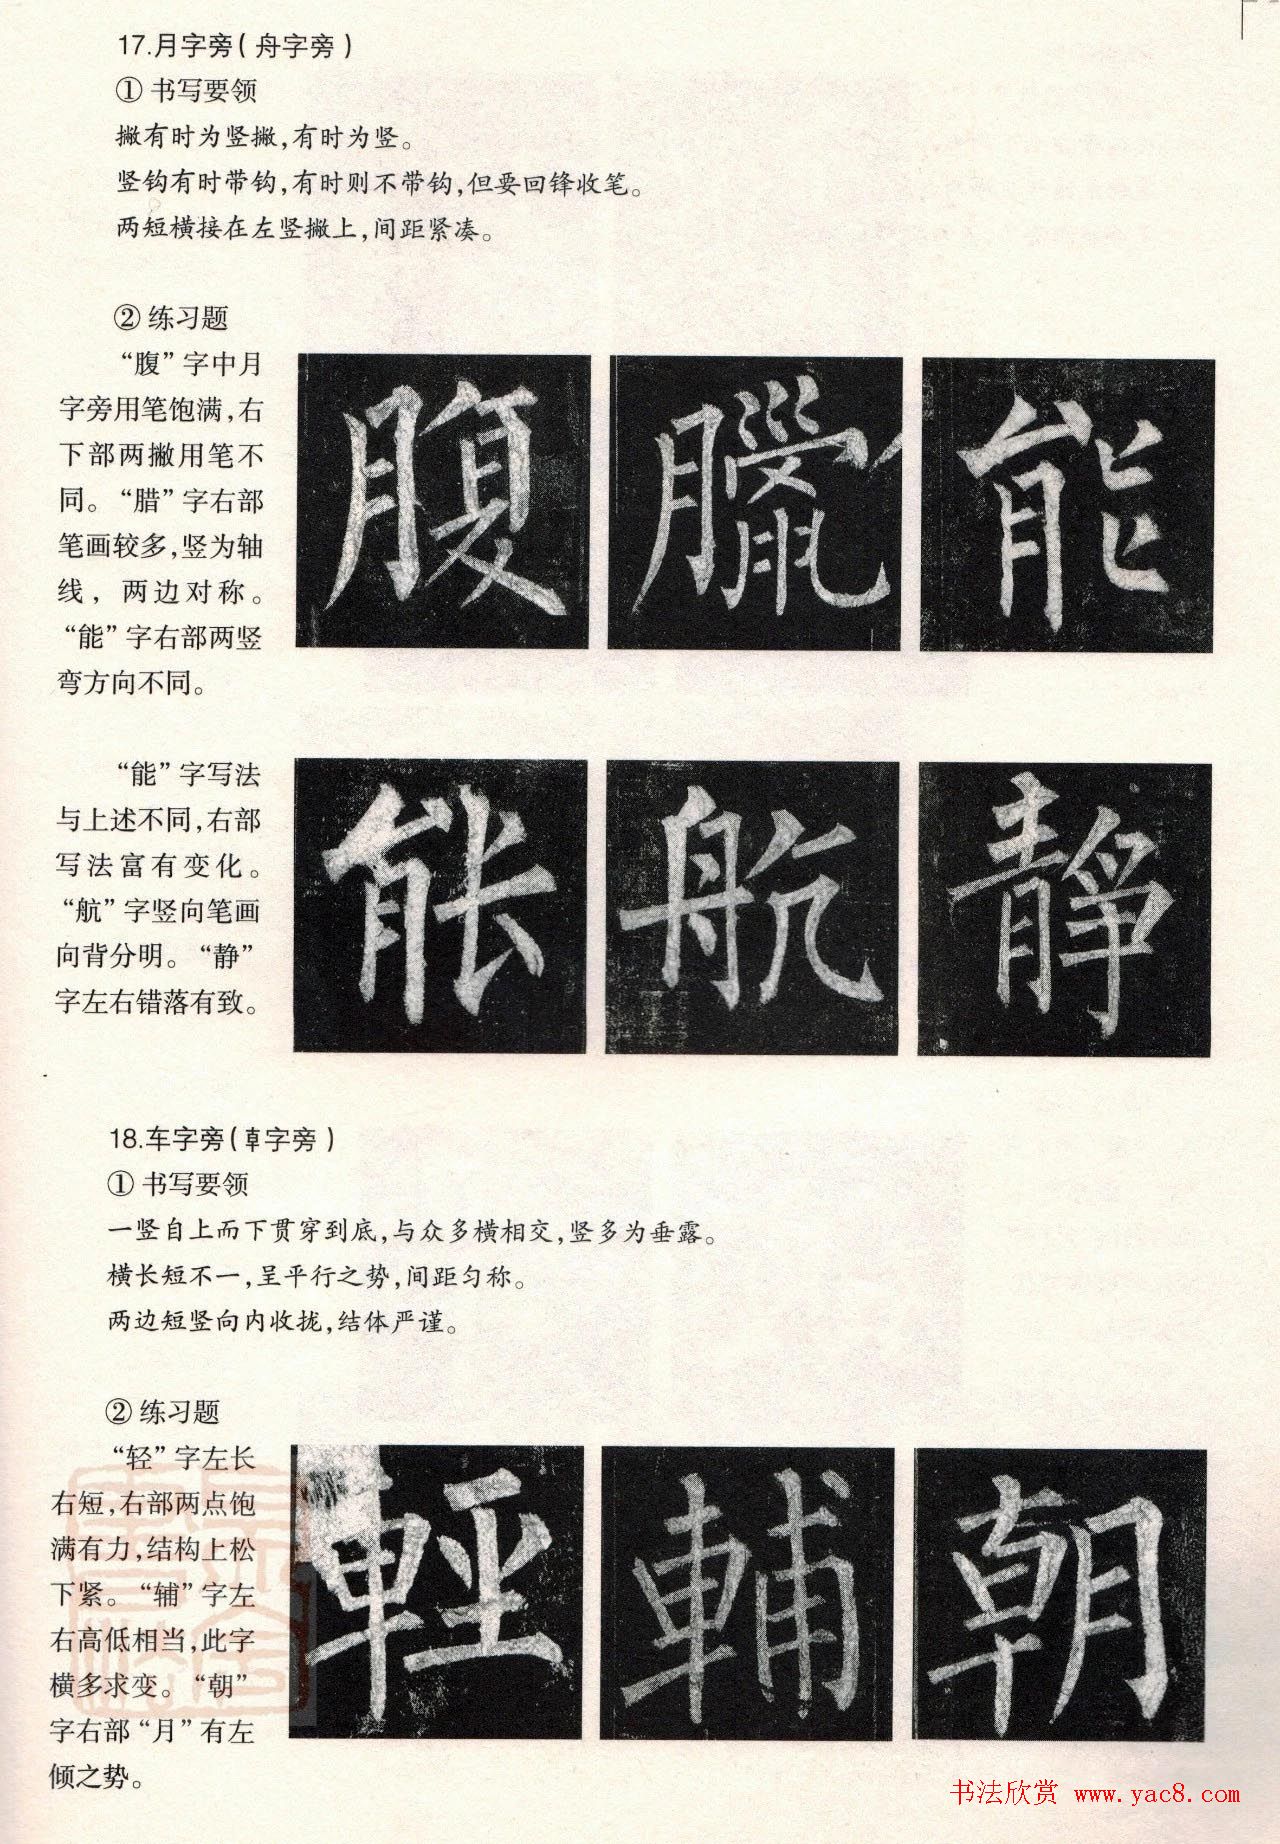 17.月字旁(舟字旁)
① 书写要领
撇有时为竖撇,有时为竖。
竖钩有时带钩,有时则不带钩,但要回锋收笔。
两短横接在左竖撇上,间距紧凑。
② 练习题
“腹”字中月
字旁用笔饱满,右
下部两撇用笔不
同。“腊”字右部
笔画较多,竖为轴
线,两边对称。
“能”字右部两竖
弯方向不同。
腹 臘 能
“能”字写法
与上述不同,右部
写法富有变化。
“航”字竖向笔画
向背分明。“静”
字左右错落有致。
能 航 靜
18.车字旁(卓字旁)
① 书写要领
一竖自上而下贯穿到底,与众多横相交,竖多为垂露。
横长短不一,呈平行之势,间距匀称。
两边短竖向内收拢,结体严谨。
② 练习题
“轻”字左长
右短,右部两点饱
满有力,结构上松
下紧。“辅”字左
右高低相当,此字
横多求变。“朝”
字右部“月”有左
倾之势。
輕 輔 朝
书法欣赏 www.yac8.com